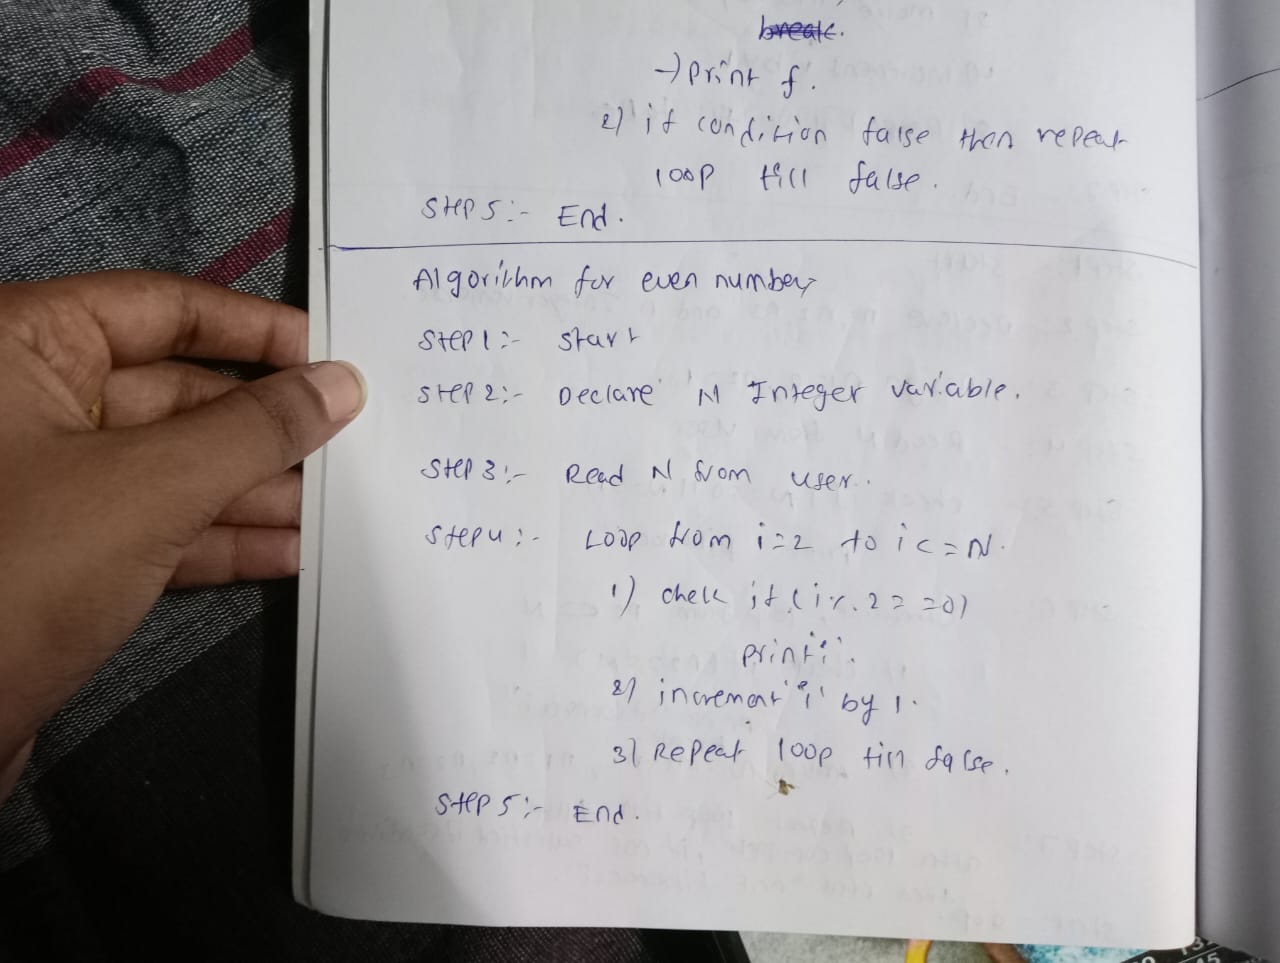 break.
→ print f.
2) if condition false then repeat
loop till false.
Step 5:- End.
Algorithm for even number,
Step 1:- Start
Step 2:- Declare 'N' Integer variable.
Step 3:- Read N from user.
Step 4:- Loop from i=2 to i<=N.
1) chek if (i%2==0)
print 'i'.
2) increment 'i' by 1.
3) Repeat loop till false.
Step 5:- End.